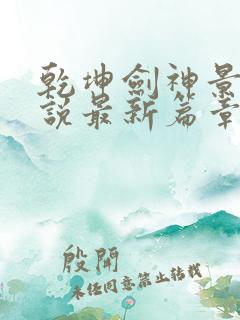 乾坤劍神景
說最新篇章
殷開
未任同意禁止轉載